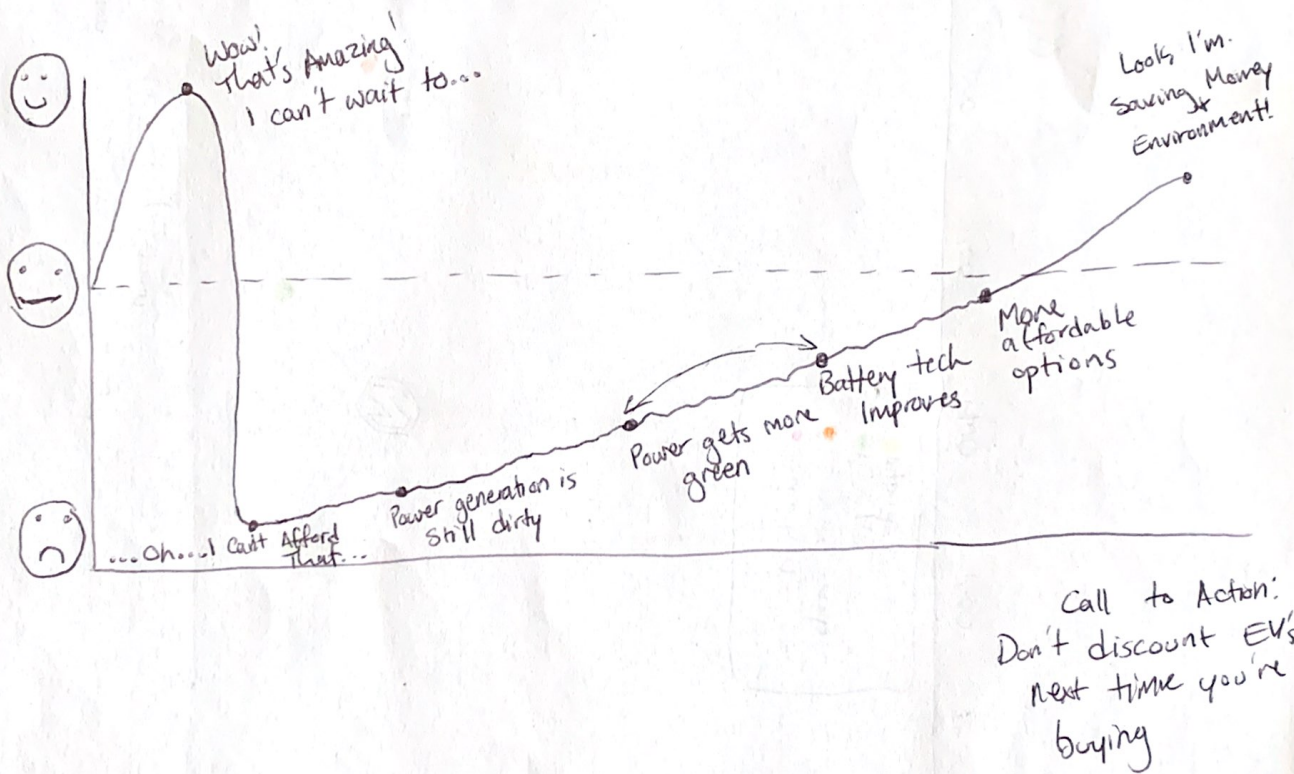 Wow!
That's Amazing!
I can't wait to...
Look, I'm
Saving Money
+
Environment!
More
affordable
options
Battery tech
improves
Power gets more
green
Power generation is
still dirty
...Oh...I Can't Afford
That...
Call to Action:
Don't discount EV's
next time you're
buying